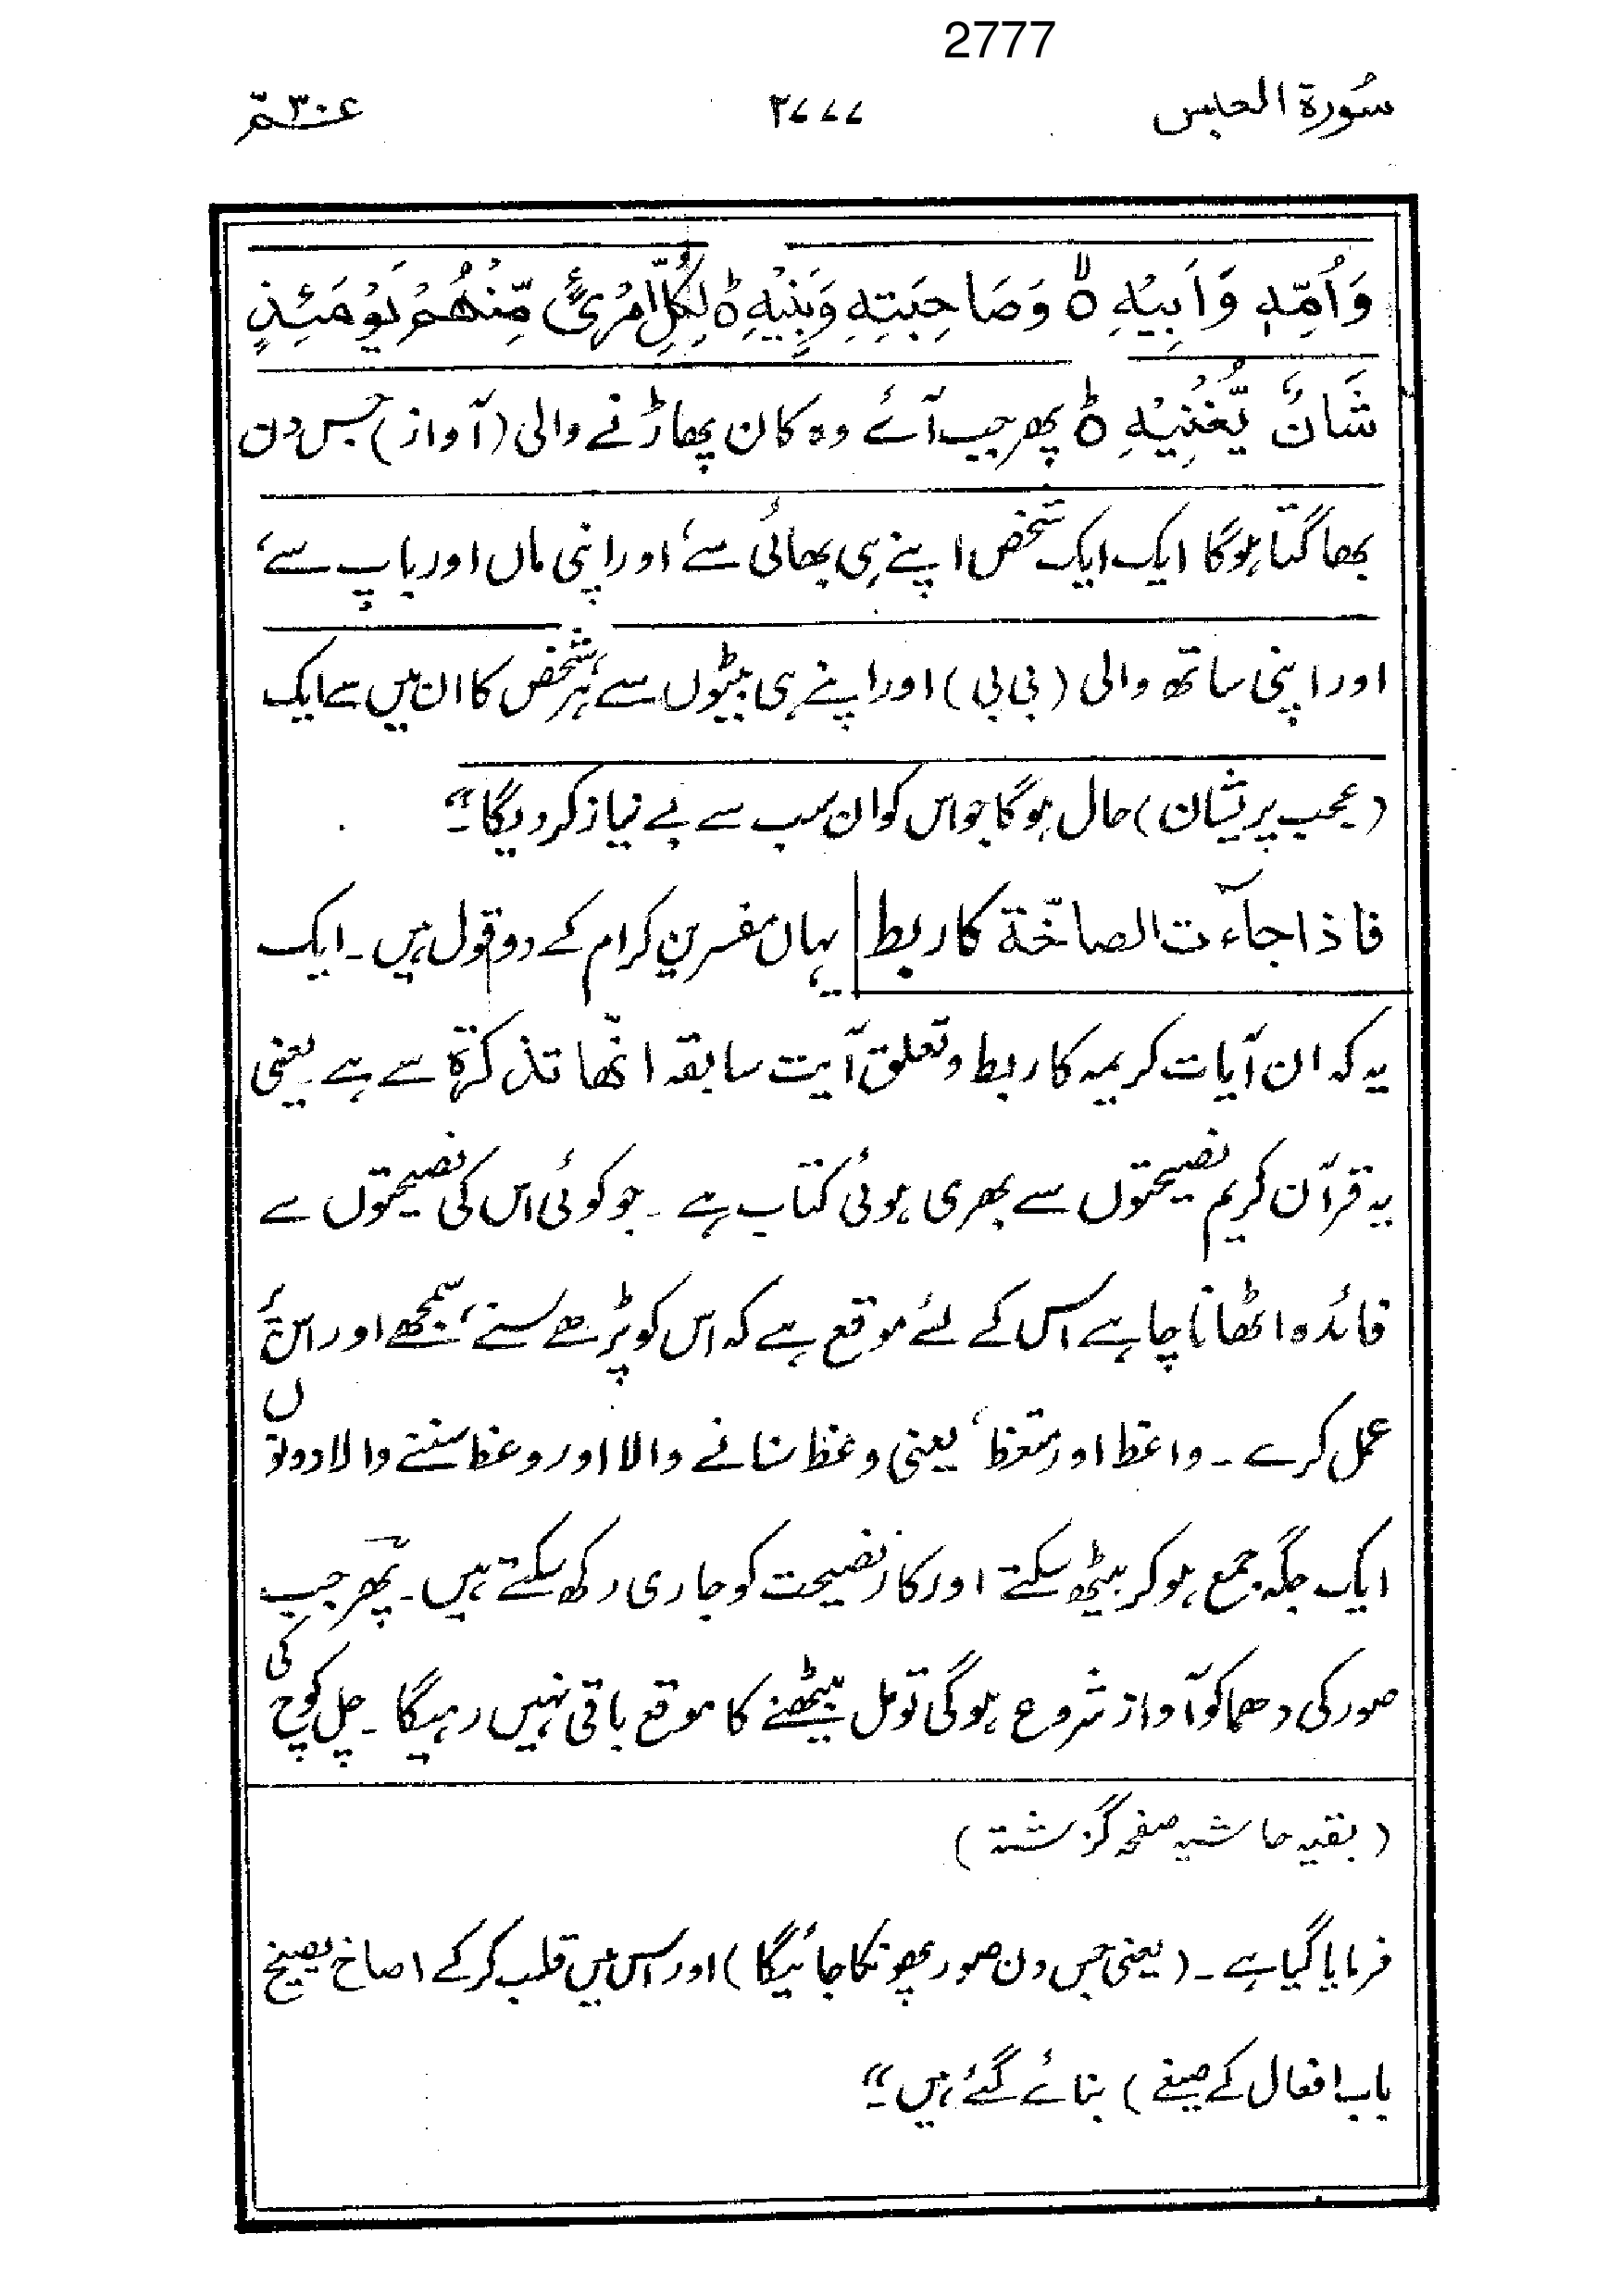 2777
سُورۃ العبس ۲۷۷۷ عۤمّ ۳۰
وَاُمِّہٖ وَاَبِیْہِ ۙ وَصَاحِبَتِہٖ وَبَنِیْہِ ؕ لِکُلِّ امْرِیًٔ مِّنْھُمْ یَوْمَئِذٍ
شَاْنٌ یُّغْنِیْہِ ؕ پھر جب آئے وہ کان پھاڑنے والی (آواز) جس دن
بھاگتا ہوگا ایک ایک شخص اپنے ہی بھائی سے، اور اپنی ماں اور باپ سے،
اور اپنی ساتھ والی (بی بی) اور اپنے ہی بیٹوں سے، ہر شخص کا ان میں سے ایک
(عجب پریشان) حال ہوگا جو اس کو ان سب سے بے نیاز کردیگا۔"
فاذا جاءَت الصاخّۃ کا ربط یہاں مفسرین کرام کے دو قول ہیں۔ ایک
یہ کہ ان آیات کریمہ کا ربط و تعلق آیت سابقہ انّھا تذکرۃ سے ہے۔ یعنی
یہ قرآن کریم نصیحتوں سے بھری ہوئی کتاب ہے۔ جو کوئی اس کی نصیحتوں سے
فائدہ اٹھانا چاہے اس کے لئے موقع ہے کہ اس کو پڑھے سنے، سمجھے اور اس پر
عمل کرے۔ واعظ اور متعظ، یعنی وعظ سنانے والا اور وعظ سننے والا دونوں
ایک جگہ جمع ہو کر بیٹھ سکتے اور کارِ نصیحت کو جاری رکھ سکتے ہیں۔ پھر جب
صور کی دھماکو آواز شروع ہوگی تو مل بیٹھنے کا موقع باقی نہیں رہیگا۔ چل کوچ کی
(بقیہ حاشیہ صفحہ گزشتہ)
فرمایا گیا ہے۔ (یعنی جس دن صور پھونکا جائیگا) اور اس میں قلب کرکے اصاخ یصیخ
باب افعال کے صیغے) بنائے گئے ہیں۔"